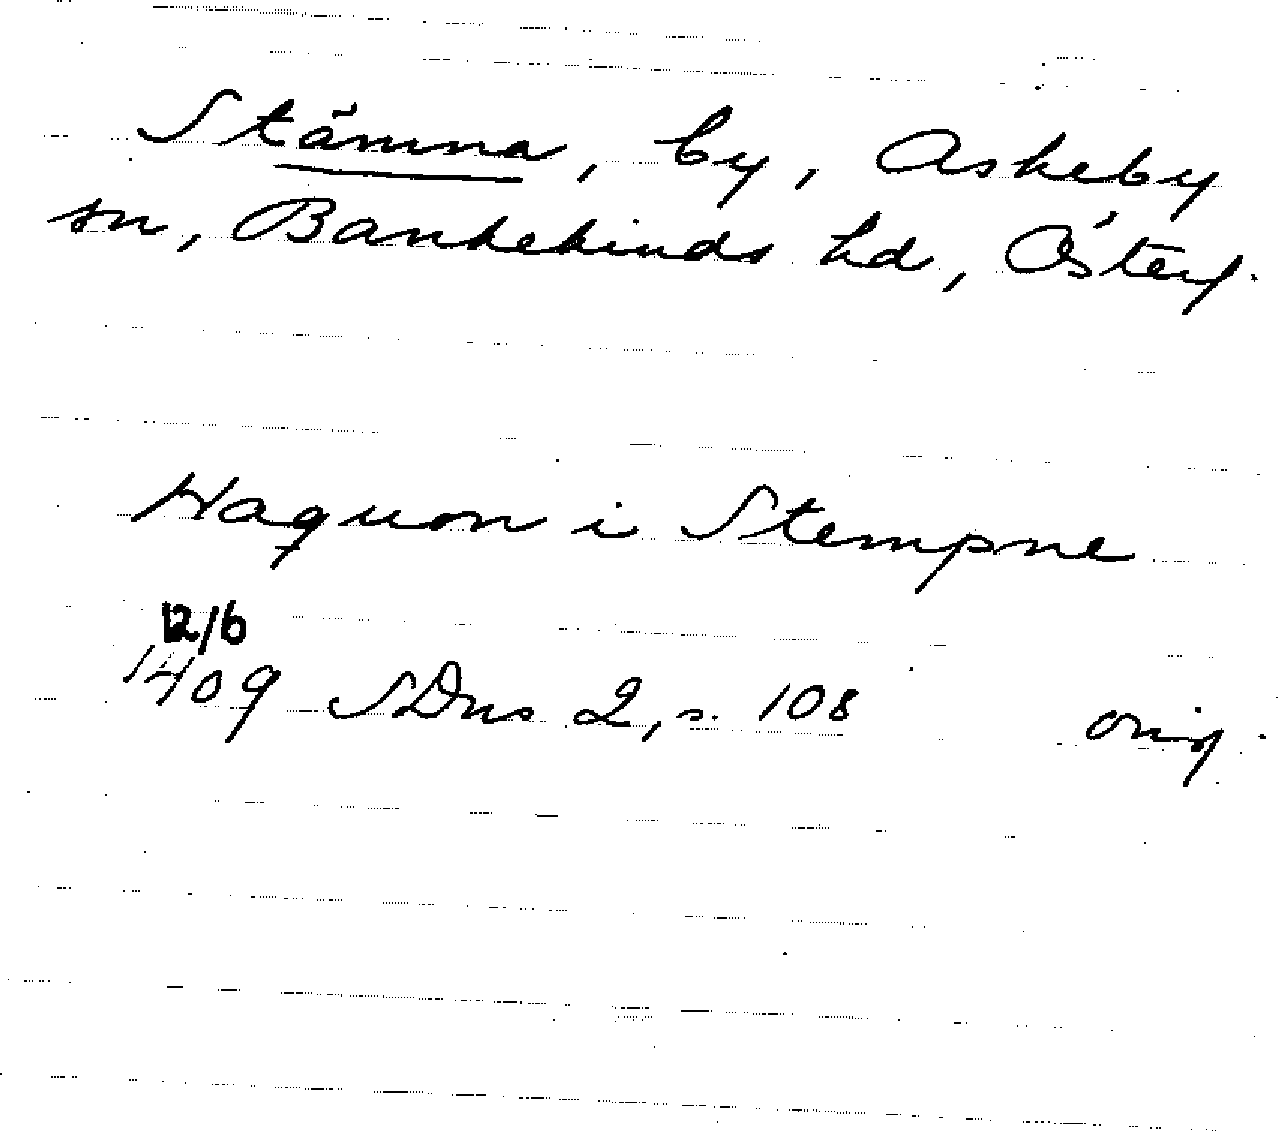 Stämna, by, Askeby
sn, Bankekinds hd, Österg.
Haquon i Stempne
12/6
1409 SDns 2, s. 108 orig.